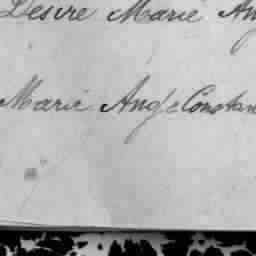 Desire Marie Ang
Marie Ange Constan